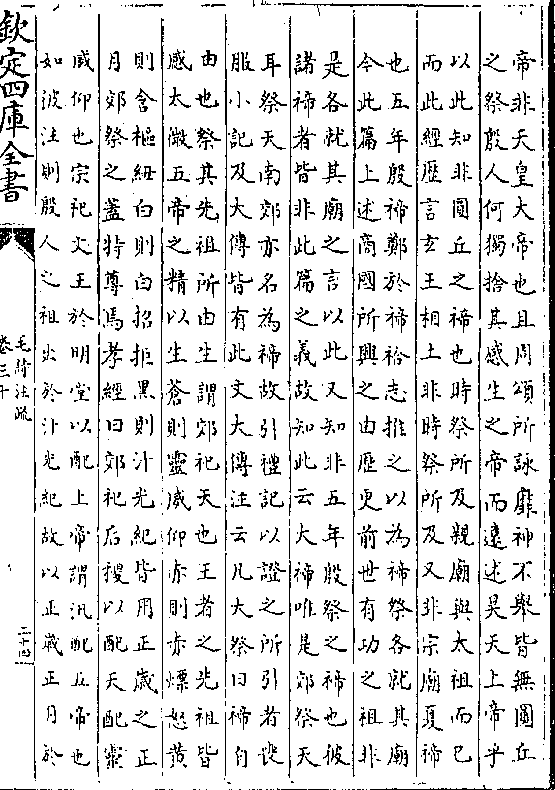 帝非天皇大帝也且周頌所詠靡神不舉皆無圜丘
之祭殷人何獨捨其感生之帝而遠述昊天上帝乎
以此知非圜丘之禘也時祭所及親廟與太祖而已
而此經歷言玄王相土非時祭所及又非宗廟夏禘
也五年殷禘鄭於禘祫志推之以為禘祭各就其廟
今此篇上述商國所興之由歷更前世有功之祖非
是各就其廟之言以此又知非五年殷祭之禘也彼
諸禘者皆非此篇之義故知此云大禘唯是郊祭天
耳祭天南郊亦名為禘故引禮記以證之所引者喪
服小記及大傳皆有此文大傳注云凡大祭曰禘自
由也祭其先祖所由生謂郊祀天也王者之先祖皆
感太微五帝之精以生蒼則靈威仰赤則赤熛怒黃
則含樞紐白則白招拒黑則汁光紀皆用正歲之正
月郊祭之蓋特尊焉孝經曰郊祀后稷以配天配靈
威仰也宗祀文王於明堂以配上帝謂汎配五帝也
如彼注則殷人之祖出於汁光紀故以正歲正月於
欽定四庫全書
毛詩注疏
卷三十
二十四